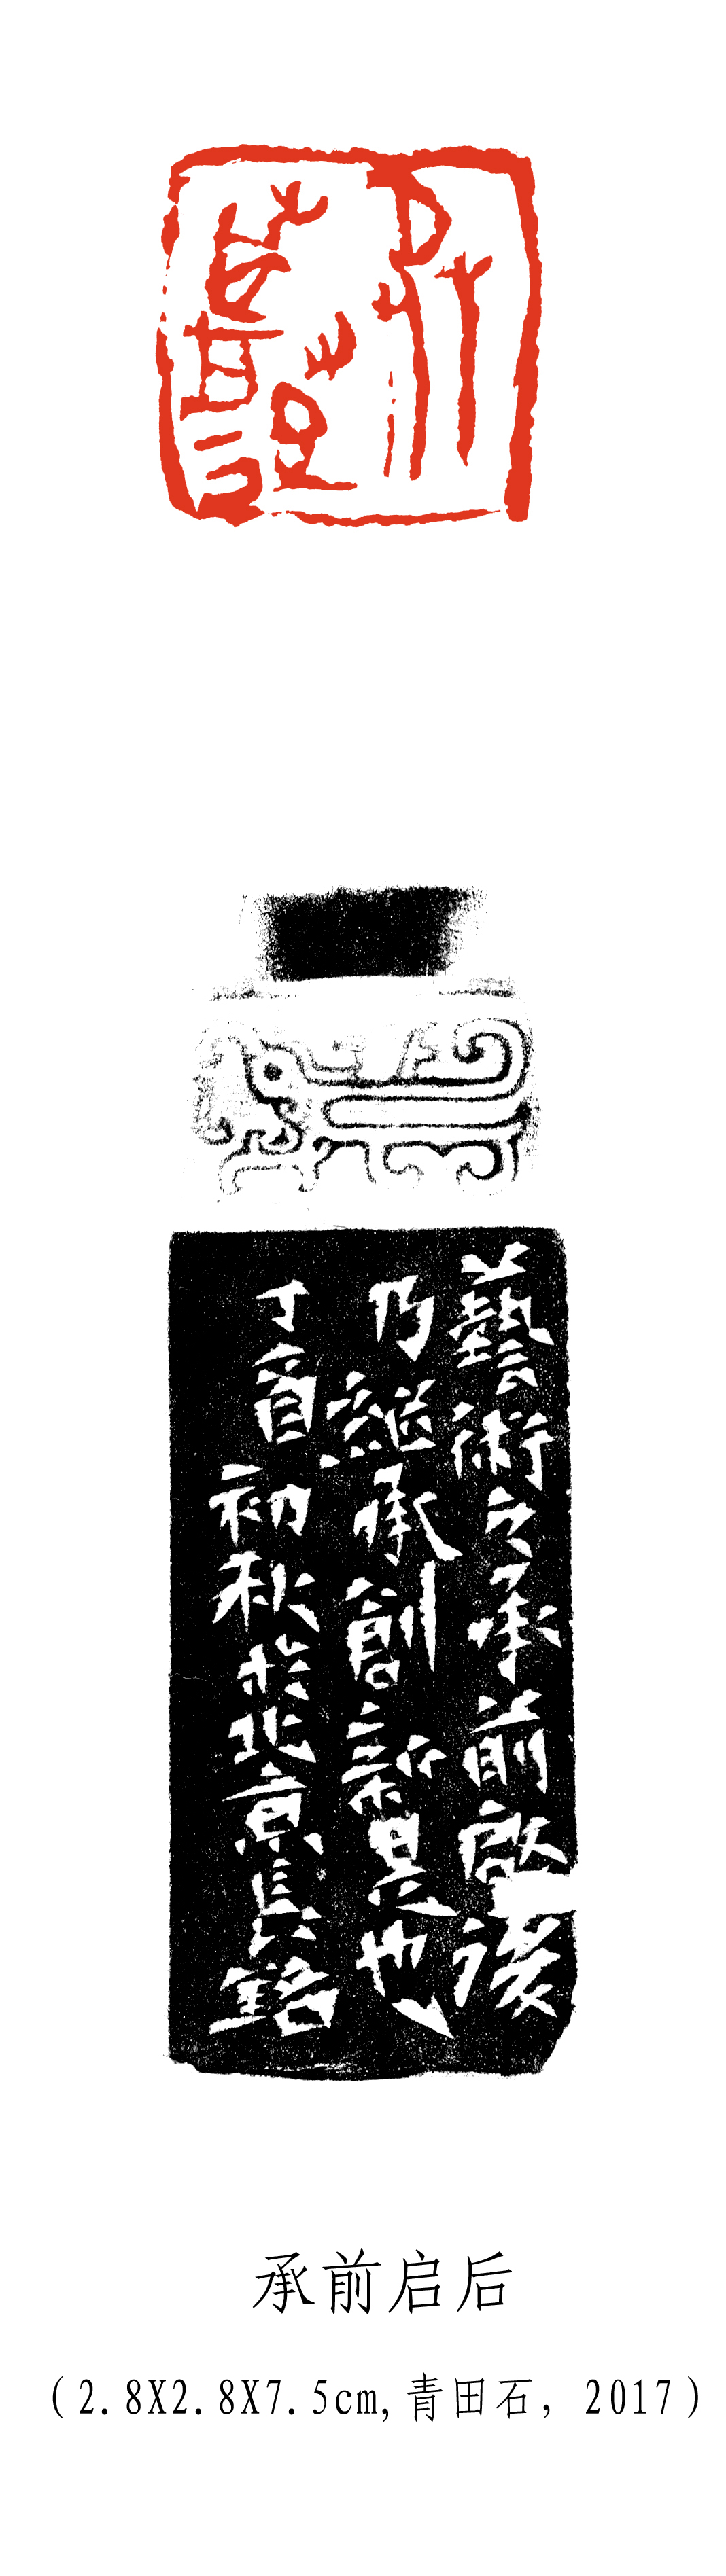 藝術之承前啟後
乃繼承創新是也
丁酉初秋於北京銘
承前启后
(2.8X2.8X7.5cm,青田石，2017)